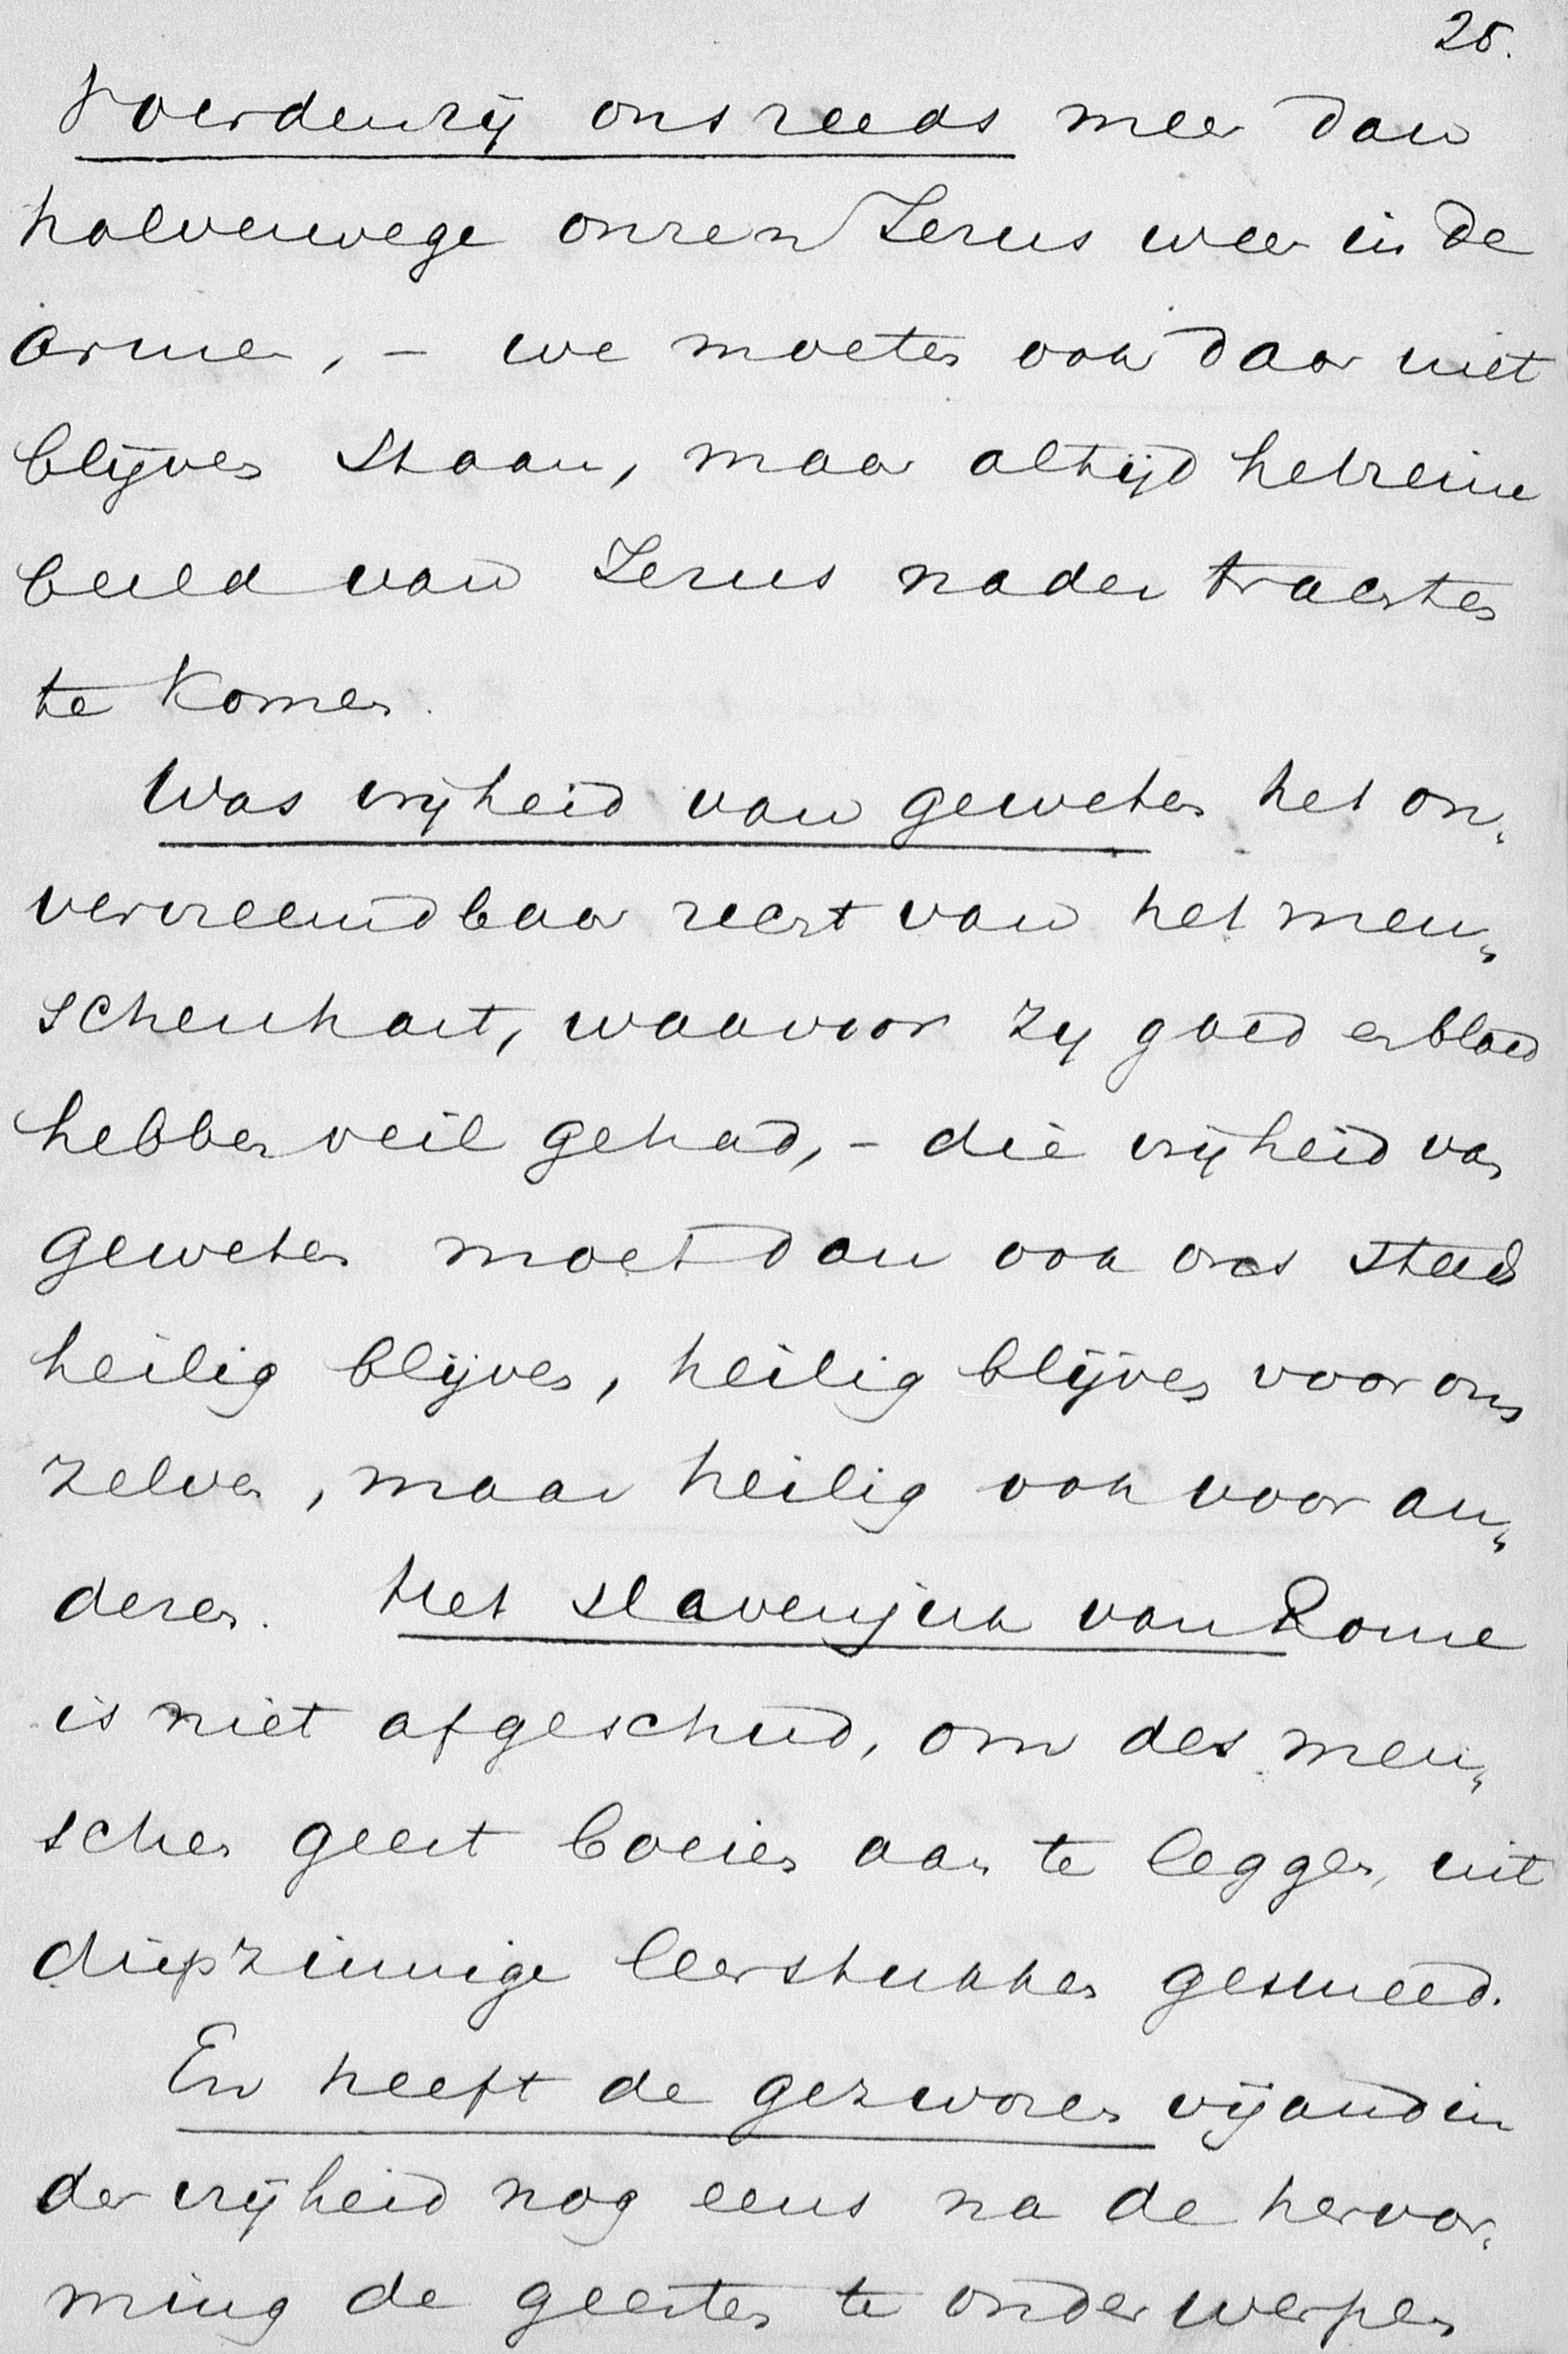 25.
Voerden zij ons reeds meer dan
halverwege onzen Jezus weer in de
armen, – we moeten ook daar niet
blijven staan, maar altijd het reine
beeld van Jezus nader trachten
te komen.
Was vrijheid van geweten het on„
vervreemdbaar recht van het men„
schenhart, waarvoor zij goed en bloed
hebben veil gehad, – die vrijheid van
geweten moet dan ook ons steeds
heilig blijven, heilig blijven voor ons
zelven, maar heilig ook voor an„
deren. Het slavenjuk van Rome
is niet afgeschud, om des men„
schen geest boeien aan te leggen, uit
diepzinnige leerstukken gesmeed.
En heeft de gezworen vijandin
der vrijheid nog eens na de hervor„
ming de geesten te onderwerpen